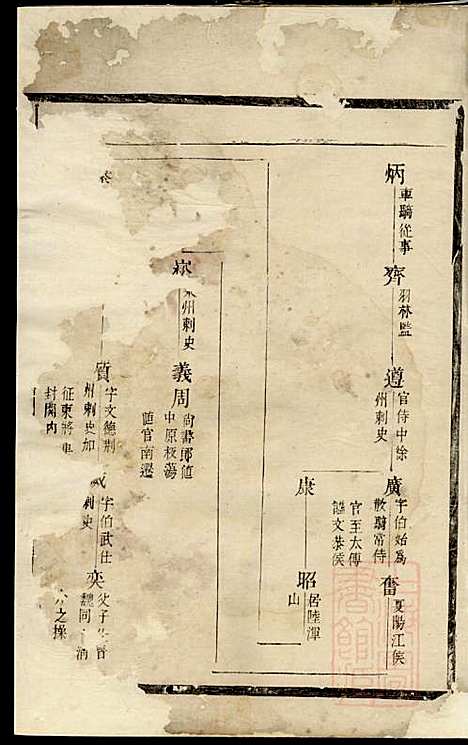 炳 車騎從事
齊 羽林監
遵 官侍中徐
州刺史
廣 字伯始為
散騎常侍
奮 夏陽江侯
康 官至太傅
諡文恭侯
昭 居陸渾
山
州刺史
義周 尚書郎值
中原板蕩
隨官南遷
質 字文德荆
州刺史加
征東將軍
封關內
威 字伯武仕
刺史
奕 父子
魏同
之操